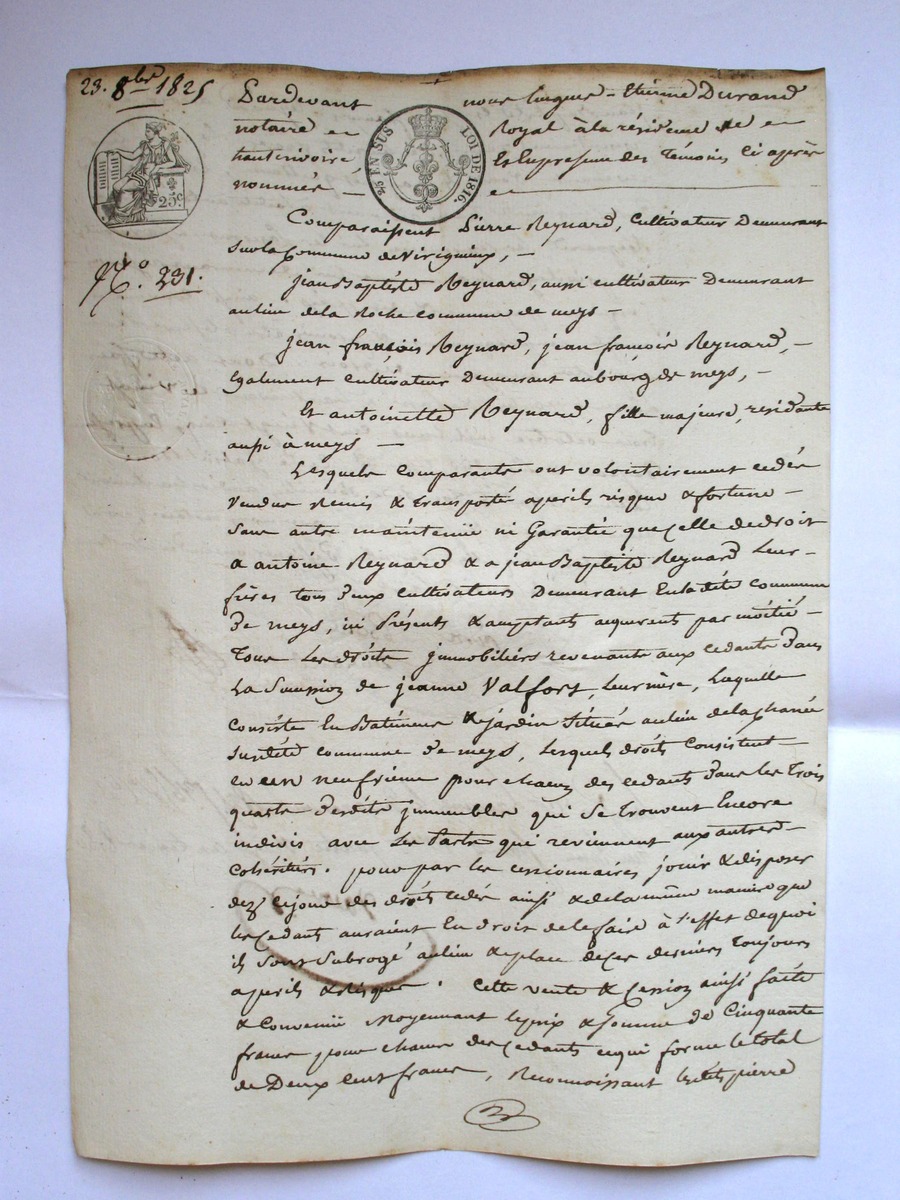 23. 8bre 1825
Pardevant nous hugues-Etienne Durand
notaire en Royal à la résidence de en
hauterivoire, Et En presence des Témoins ci après
nommés
25 EN SUS LOI DE 1816.
25c.
N.º 231.
Comparaissent Pierre Reynard, cultivateur Demeurant
sur la Commune de Virigneux, —
jean Baptiste Reynard, aussi cultivateur Demeurant
au lieu de la Roche commune de meys —
jean françois Reynard, jean françois Reynard, —
Egalement cultivateur Demeurant au bourg de meys, —
Et antoinette Reynard, fille majeure, residante
aussi à meys —
Lesquels comparants ont volontairement cedés
vendus Remis & transporté a perils risque & fortune —
sans autre maintenüe ni Garantie que celle de droit
a antoine Reynard & a jean Baptiste Reynard Leur-
frères tous deux cultivateurs Demeurant En la dité commune
de meys, ici Présents & acceptants acquerents par moitié —
Tous Les droits immobiliers revenants aux cedants dans
La Succession de jeanne Valfort, Leur mère, Laquelle
consiste En Batiments & jardin Situés au lieu de la
susdité commune de meys, Lesquels droits consistent
en un neufvieme pour chacun des cedants dans les trois
quarts desdits immeubles qui se trouvent Encore
indivis avec Les Parts qui reviennent aux autres-
cohéritiers. pour par les cessionnaires jouir & disposer
dez ce jour des droits cedés ainsi & de la même manière que
les cedants auraient En droit de le faire à l'effet de quoi
ils sont subrogé au lieu & place de ces derniers toujours
a perils & risques. Cette vente & cession ainsi faite
& Convenüe Moyennant le prix & somme de Cinquante
francs pour chacun des cedants ce qui forme le total
de Deux Cent francs, Reconnoissant lesdits pierre